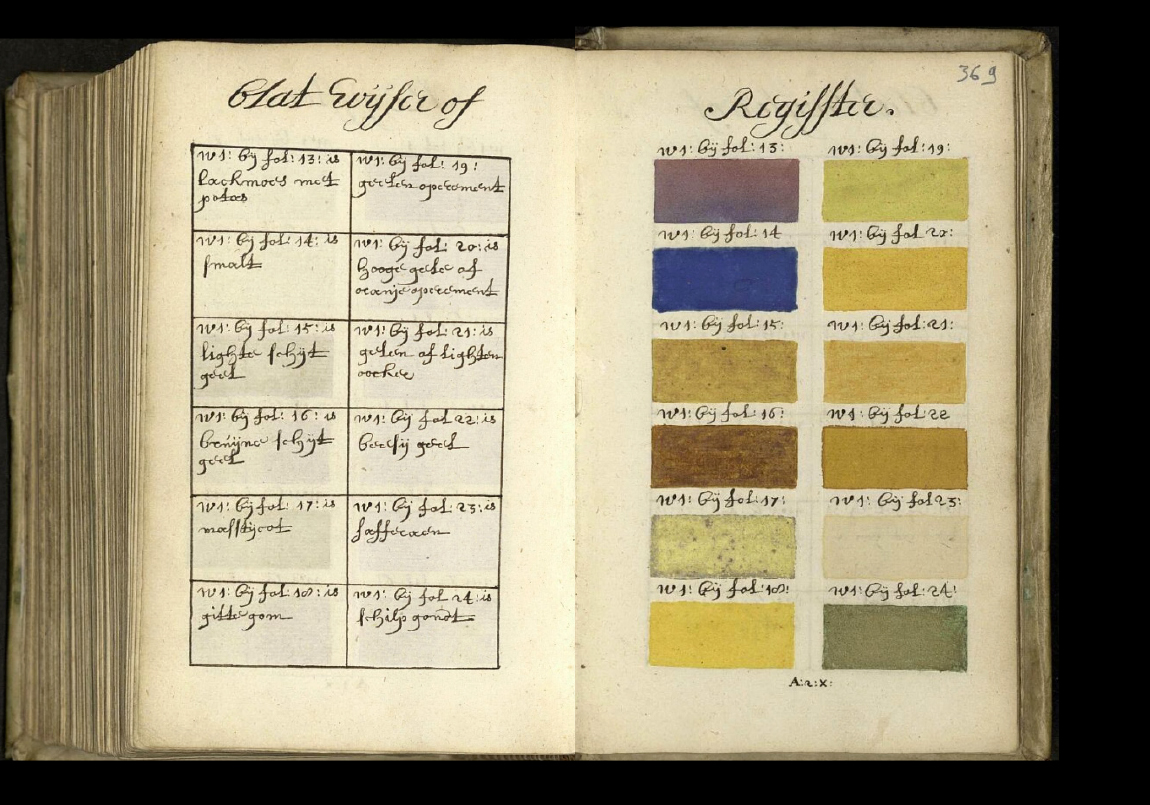 Blat Wijser of
w1: bij fol: 13: is
lackmoes met
potas
w1: bij fol: 19:
geelen operement
w1: bij fol: 14: is
smalt
w1: bij fol: 20: is
hooge gele of
oranje operement
w1: bij fol: 15: is
lighte schijt
geel
w1: bij fol: 21: is
gelen of lighten
oocker
w1: bij fol: 16: is
bruijne schijt
geel
w1: bij fol 22: is
beesij geel
w1: bij fol: 17: is
masstijcot
w1: bij fol: 23: is
safferaen
w1: bij fol: 18: is
gitte gom
w1: bij fol 24: is
schilp goudt
369
Regisster.
w1: bij fol: 13:
w1: bij fol: 19:
w1: bij fol: 14
w1: bij fol 20:
w1: bij fol: 15:
w1: bij fol: 21:
w1: bij fol: 16:
w1 bij fol 22
w1: bij fol: 17:
w1: bij fol 23:
w1: bij fol: 18:
w1: bij fol: 24:
A:2:x: